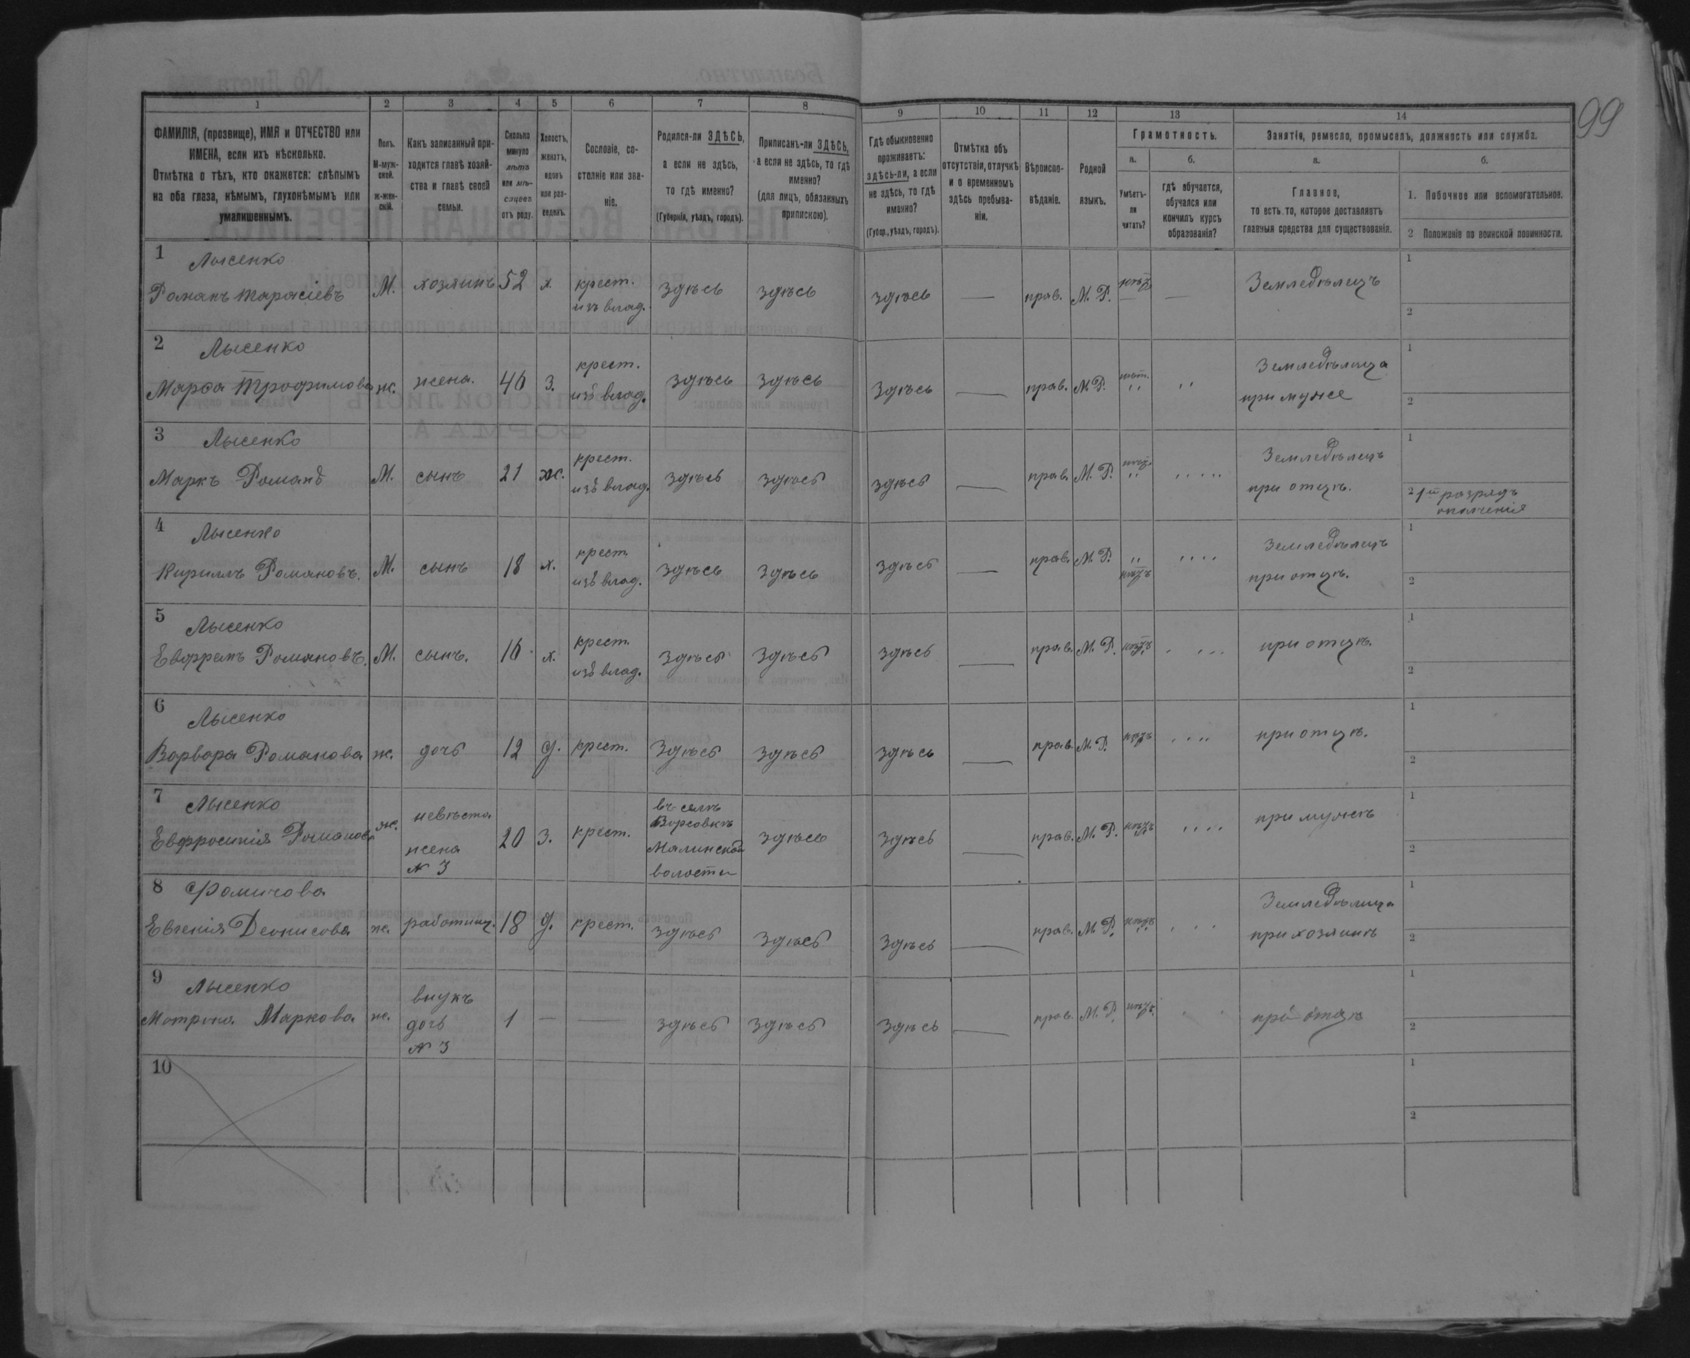 99
1 2 3 4 5 6 7 8 9 10 11 12 13 14
ФАМИЛІЯ, (прозвище), ИМЯ и ОТЧЕСТВО или
ИМЕНА, если ихъ нѣсколько.
Отмѣтка о тѣхъ, кто окажется: слѣпымъ
на оба глаза, нѣмымъ, глухонѣмымъ или
умалишеннымъ.
Полъ.
М-муж-
ской.
ж-жен-
скій.
Какъ записанный при-
ходится главѣ хозяй-
ства и главѣ своей
семьи.
Сколько
минуло
лѣтъ
или мѣ-
сяцевъ
отъ роду.
Холостъ,
женатъ,
вдовъ
или раз-
веденъ.
Сословіе, со-
стояніе или зва-
ніе.
Родился-ли ЗДѢСЬ,
а если не здѣсь,
то гдѣ именно?
(Губернія, уѣздъ, городъ).
Приписанъ-ли ЗДѢСЬ,
а если не здѣсь, то гдѣ
именно?
(для лицъ, обязанныхъ
припискою).
Гдѣ обыкновенно
проживаетъ:
здѣсь-ли, а если
не здѣсь, то гдѣ
именно?
(Губер., уѣздъ, городъ).
Отмѣтка объ
отсутствіи, отлучкѣ
и о временномъ
здѣсь пребыва-
ніи.
Вѣроиспо-
вѣданіе.
Родной
языкъ.
Грамотность.
а.
Умѣетъ-
ли
читать?
б.
гдѣ обучается,
обучался или
кончилъ курсъ
образованія?
Занятіе, ремесло, промыселъ, должность или служба.
а.
Главное,
то есть то, которое доставляетъ
главныя средства для существованія.
б.
1. Побочное или вспомогательное.
2 Положеніе по воинской повинности.
1 Лысенко
Романъ Тарасіевъ М. хозяинъ 52 х крест. изъ влад. здѣсь здѣсь здѣсь — прав. М. Р. — Земледѣлецъ 1 2
2 Лысенко
Марѳа Трофимова ж. жена. 46 з. крест. изъ влад. здѣсь здѣсь здѣсь — прав. М. Р. " " Земледѣлица при мужѣ 1 2
3 Лысенко
Маркъ Романъ М. сынъ 21 ж. крест. изъ влад. здѣсь здѣсь здѣсь — прав. М. Р. " " Земледѣлецъ при отцѣ. 1 2 1й разрядъ ополченія
4 Лысенко
Кириллъ Романовъ. М. сынъ 18 х. крест изъ влад. здѣсь здѣсь здѣсь — прав. М. Р. " " Земледѣлецъ при отцѣ. 1 2
5 Лысенко
Евфремъ Романовъ. М. сынъ. 16 х. крест. изъ влад. здѣсь здѣсь здѣсь — прав. М. Р. при отцѣ. 1 2
6 Лысенко
Варвара Романова ж. дочь 12 д. крест. здѣсь здѣсь здѣсь — прав. М. Р. при отцѣ. 1 2
7 Лысенко
Евфросинія Романова ж. невѣста жена № 3 20 з. крест. въ селѣ Ворсовкѣ Малинской волости здѣсь здѣсь — прав. М. Р. при мужѣ 1 2
8 Фомичова
Евгенія Деонисова ж. работниц. 18 д. крест. здѣсь здѣсь здѣсь — прав. М. Р. Земледѣлица при хозяинѣ 1 2
9 Лысенко
Мотрона Маркова ж. внукъ дочь № 3 1 — — здѣсь здѣсь здѣсь — прав. М. Р. при отцѣ 1 2
10 1 2